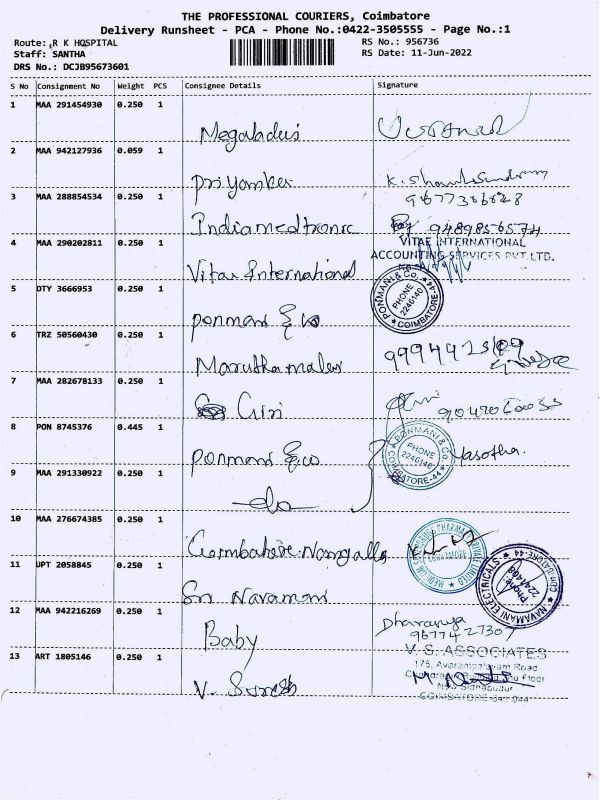 THE PROFESSIONAL COURIERS, Coimbatore
Delivery Runsheet - PCA - Phone No.:0422-3505555 - Page No.:1
Route: R K HOSPITAL RS No.: 956736
Staff: SANTHA RS Date: 11-Jun-2022
DRS No.: DCJB95673601
S No Consignment No Weight PCS Consignee Details Signature
1 MAA 291454930 0.250 1
2 MAA 942127936 0.059 1
Priyanker K. Shanthi
3 MAA 288854534 0.250 1
Indiamedtronic 9489856574
4 MAA 290202811 0.250 1
VITAE INTERNATIONAL
ACCOUNTING SERVICES PVT. LTD.
Vitae International
5 OTY 3666953 0.250 1
PONMANI & Co. PHONE 2246140 COIMBATORE-44
Ponmani & co
6 TRZ 50560430 0.250 1
Maruthamalai
7 MAA 282678133 0.250 1
Giri
8 PON 8745376 0.445 1
PONMANI & Co. PHONE 2246140 COIMBATORE-44
Ponmani & co Yasotha.
9 MAA 291330922 0.250 1
do
10 MAA 276674385 0.250 1
Coimbatore
11 UPT 2058845 0.250 1
NAVAMANI ELECTRICALS COIMBATORE-44 Phone
Sri Navamani
12 MAA 942216269 0.250 1
Baby Dharanya
9677427307
13 ART 1805146 0.250 1
V. S. ASSOCIATES
175, Avarampalayam Road
New Sidhapudur
COIMBATORE-641 044
V. Suresh